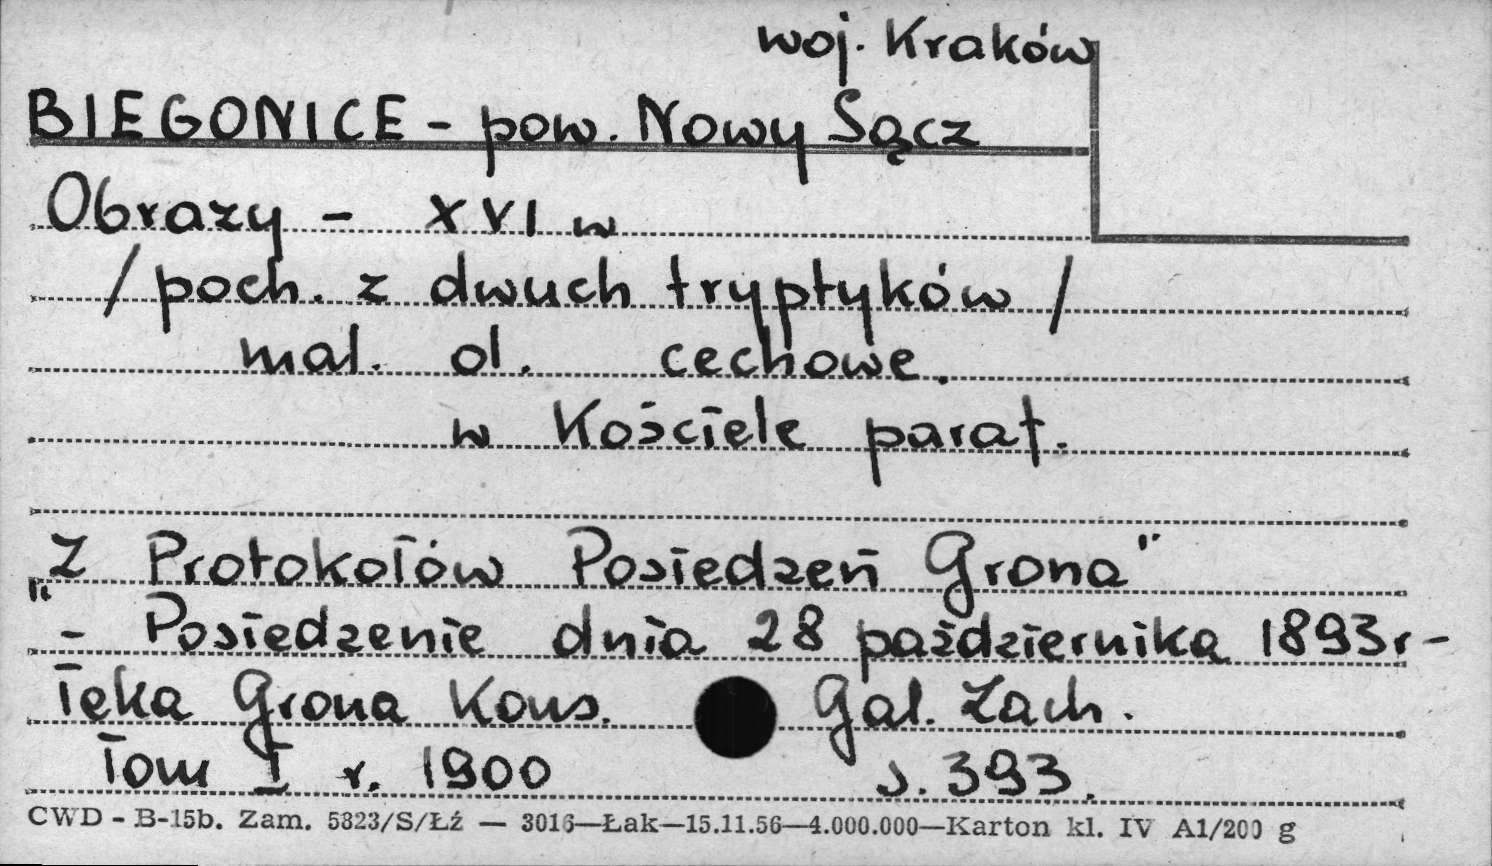 woj. Kraków
BIEGONICE - pow. Nowy Sącz
Obrazy - XVI w
/ poch. z dwuch tryptyków /
mal. ol. cechowe.
w Kościele paraf.
„Z Protokołów Posiedzeń Grona"
- Posiedzenie dnia 28 października 1893 r -
Teka Grona Kons. Gal. Zach.
Tom I r. 1900 s. 393.
CWD - B-15b. Zam. 5823/S/Łź — 3016—Łak—15.11.56—4.000.000—Karton kl. IV A1/200 g